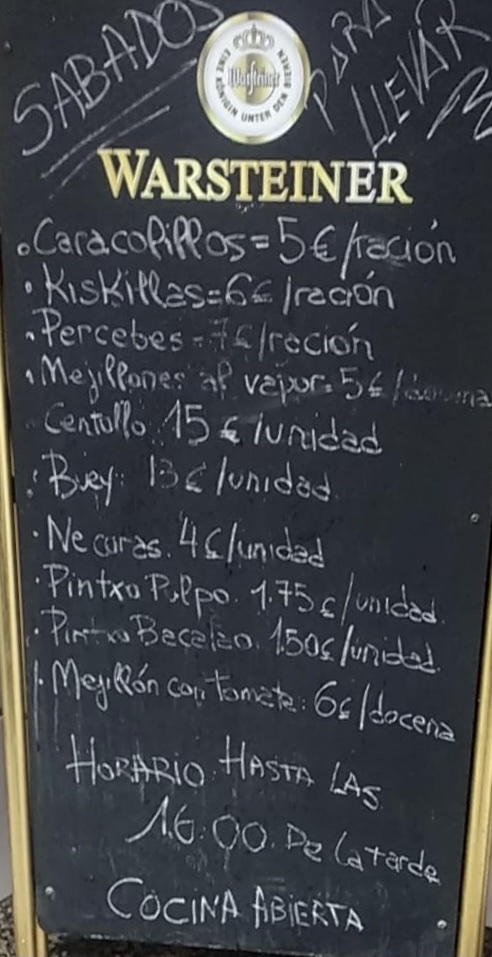 SABADOS
PARA
LLEVAR
Warsteiner
EINE KÖNIGIN UNTER DEN BIEREN
WARSTEINER
• Caracolillos = 5€/ración
• Kiskillas = 6€/ración
• Percebes = 7€/ración
• Mejillones al vapor = 5€/docena
Centollo 15€/unidad
• Buey: 13€/unidad
• Necoras. 4€/unidad
• Pintxo Pulpo. 1.75€/unidad.
• Pintxo Bacalao. 1.50€/unidad.
• Mejillón con tomate: 6€/docena
HORARIO HASTA LAS
16:00. De la tarde
COCINA ABIERTA